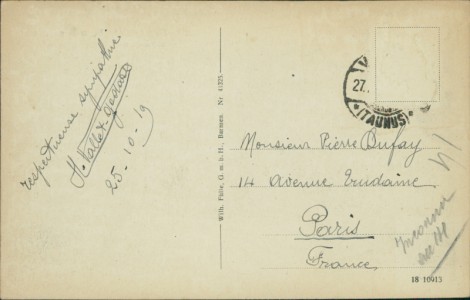 respectueuse sympathie
H. Vallet-
25-10-19
Wilh. Fülle, G. m. b. H., Barmen. Nr 41325
27.
*(TAUNUS)*
Monsieur Pierre Dufay
14 Avenue Trudaine
Paris
France
Inconnu
au 14
18 10913